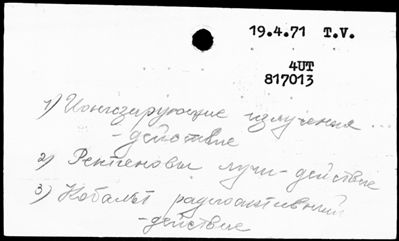 19.4.71 T.V.
4UT
817013
1) Ионизирующие излучения ...
- действие
2) Рентгеновы лучи - действие
3) Кобальт радиоактивный
- действие